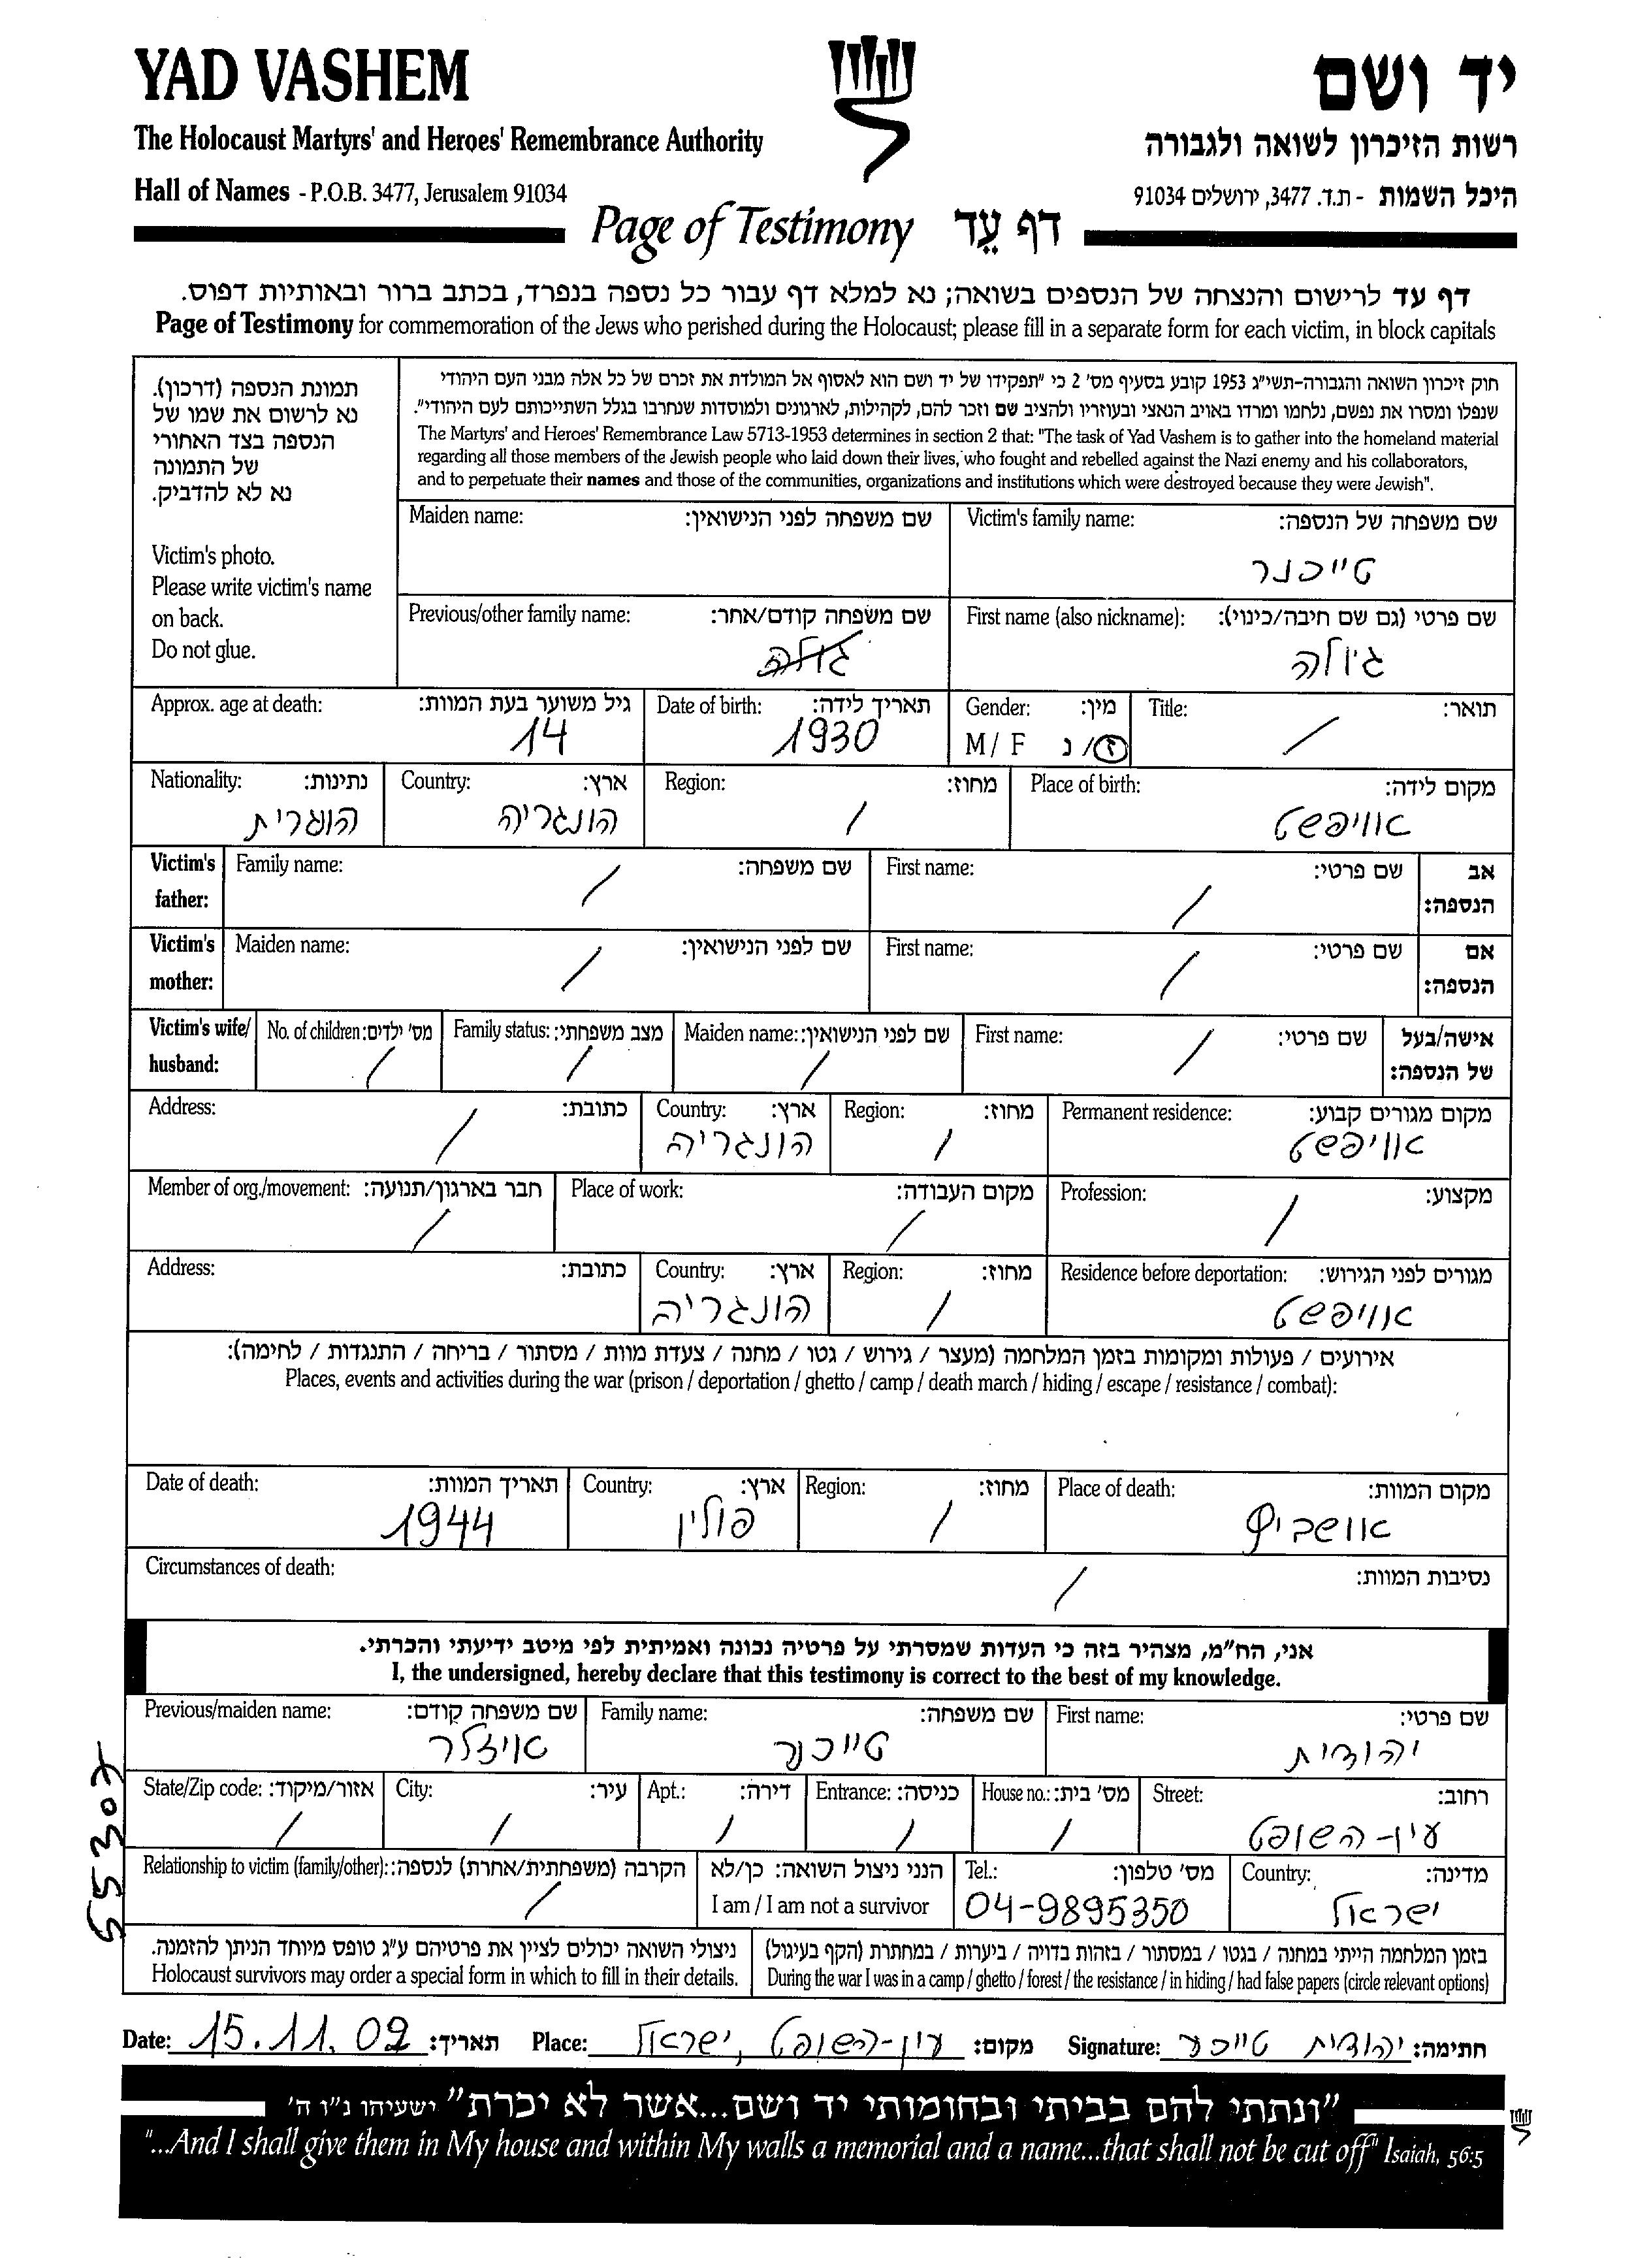 YAD VASHEM
יד ושם
The Holocaust Martyrs' and Heroes' Remembrance Authority
רשות הזיכרון לשואה ולגבורה
Hall of Names - P.O.B. 3477, Jerusalem 91034
היכל השמות - ת.ד. 3477, ירושלים 91034
Page of Testimony דף עֵד
דף עד לרישום והנצחה של הנספים בשואה; נא למלא דף עבור כל נספה בנפרד, בכתב ברור ובאותיות דפוס.
Page of Testimony for commemoration of the Jews who perished during the Holocaust; please fill in a separate form for each victim, in block capitals
תמונת הנספה (דרכון).
נא לרשום את שמו של
הנספה בצד האחורי
של התמונה
נא לא להדביק.
Victim's photo.
Please write victim's name
on back.
Do not glue.
חוק זיכרון השואה והגבורה-תשי"ג 1953 קובע בסעיף מס' 2 כי "תפקידו של יד ושם הוא לאסוף אל המולדת את זכרם של כל אלה מבני העם היהודי
שנפלו ומסרו את נפשם, נלחמו ומרדו באויב הנאצי ובעוזריו ולהציב שם וזכר להם, לקהילות, לארגונים ולמוסדות שנחרבו בגלל השתייכותם לעם היהודי".
The Martyrs' and Heroes' Remembrance Law 5713-1953 determines in section 2 that: "The task of Yad Vashem is to gather into the homeland material
regarding all those members of the Jewish people who laid down their lives, who fought and rebelled against the Nazi enemy and his collaborators,
and to perpetuate their names and those of the communities, organizations and institutions which were destroyed because they were Jewish".
שם משפחה של הנספה: Victim's family name:
טייכנר
שם משפחה לפני הנישואין: Maiden name:
שם פרטי (גם שם חיבה/כינוי): First name (also nickname):
ג'ולה
שם משפחה קודם/אחר: Previous/other family name:
תואר: Title:
/
מין: Gender:
ז/נ M / F
תאריך לידה: Date of birth:
1930
גיל משוער בעת המוות: Approx. age at death:
14
מקום לידה: Place of birth:
אוויפשט
מחוז: Region:
/
ארץ: Country:
הונגריה
נתינות: Nationality:
הונגרית
אב הנספה: Victim's father:
שם פרטי: First name:
/
שם משפחה: Family name:
/
אם הנספה: Victim's mother:
שם פרטי: First name:
/
שם לפני הנישואין: Maiden name:
/
אישה/בעל של הנספה: Victim's wife/ husband:
שם פרטי: First name:
/
שם לפני הנישואין: Maiden name:
/
מצב משפחתי: Family status:
/
מס' ילדים: No. of children:
/
מקום מגורים קבוע: Permanent residence:
אוויפשט
מחוז: Region:
/
ארץ: Country:
הונגריה
כתובת: Address:
/
מקצוע: Profession:
/
מקום העבודה: Place of work:
/
חבר בארגון/תנועה: Member of org./movement:
/
מגורים לפני הגירוש: Residence before deportation:
אוויפשט
מחוז: Region:
/
ארץ: Country:
הונגריה
כתובת: Address:
אירועים / פעולות ומקומות בזמן המלחמה (מעצר / גירוש / גטו / מחנה / צעדת מוות / מסתור / בריחה / התנגדות / לחימה):
Places, events and activities during the war (prison / deportation / ghetto / camp / death march / hiding / escape / resistance / combat):
מקום המוות: Place of death:
אושביץ
מחוז: Region:
/
ארץ: Country:
פולין
תאריך המוות: Date of death:
1944
נסיבות המוות: Circumstances of death:
/
אני, הח"מ, מצהיר בזה כי העדות שמסרתי על פרטיה נכונה ואמיתית לפי מיטב ידיעתי והכרתי.
I, the undersigned, hereby declare that this testimony is correct to the best of my knowledge.
שם פרטי: First name:
יהודית
שם משפחה: Family name:
טייכנר
שם משפחה קודם: Previous/maiden name:
איזלר
רחוב: Street:
עין-השופט
מס' בית: House no.:
/
כניסה: Entrance:
/
דירה: Apt.:
/
עיר: City:
/
אזור/מיקוד: State/Zip code:
/
מדינה: Country:
ישראל
מס' טלפון: Tel.:
04-9895350
הנני ניצול השואה: כן/לא
I am / I am not a survivor
הקרבה (משפחתית/אחרת) לנספה: Relationship to victim (family/other):
/
בזמן המלחמה הייתי במחנה / בגטו / במסתור / בזהות בדויה / ביערות / במחתרת (הקף בעיגול)
During the war I was in a camp / ghetto / forest / the resistance / in hiding / had false papers (circle relevant options)
ניצולי השואה יכולים לציין את פרטיהם ע"ג טופס מיוחד הניתן להזמנה.
Holocaust survivors may order a special form in which to fill in their details.
חתימה: יהודית טייכנר Signature:
מקום: עין-השופט, ישראל Place:
תאריך: 15.11.02 Date:
"ונתתי להם בביתי ובחומותי יד ושם...אשר לא יכרת" ישעיהו נ"ו ה'
"...And I shall give them in My house and within My walls a memorial and a name...that shall not be cut off" Isaiah, 56:5